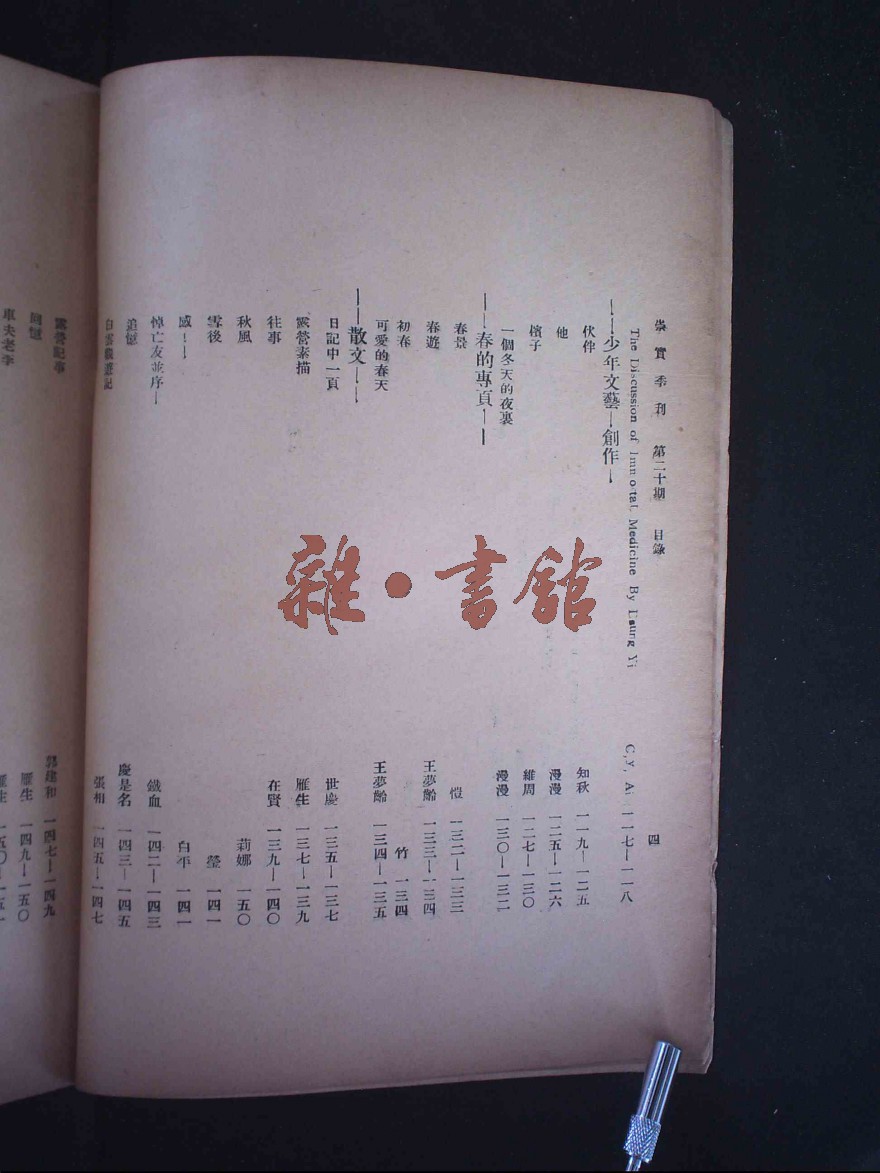 崇實季刊 第二十期 目錄 四
The Discussion of Immortal Medicine By Dsung Yi C.Y. Ai 一一七—一一八
——少年文藝—創作—
伏侔 知秋 一一九—一二五
他 漫漫 一二五—一二六
檳子 維周 一二七—一三〇
一個冬天的夜裏 漫漫 一三〇—一三二
——春的專頁——
春景 愷 一三二—一三三
春遊 王夢齡 一三三—一三四
初春 竹 一三四
可愛的春天 王夢齡 一三四—一三五
——散文——
日記中一頁 世慶 一三五—一三七
露營素描 雁生 一三七—一三九
往事 在賢 一三九—一四〇
秋風 莉娜 一五〇
雪後 瑩 一四一
感—— 白平 一四一
悼亡友並序— 鐵血 一四二—一四三
追憶 慶是名 一四三—一四五
白雲觀遊記 張相 一四五—一四七
露營記事 郭建和 一四七—一四九
回憶 雁生 一四九—一五〇
車夫老李 雁生 一五〇—一五一
雜·書館